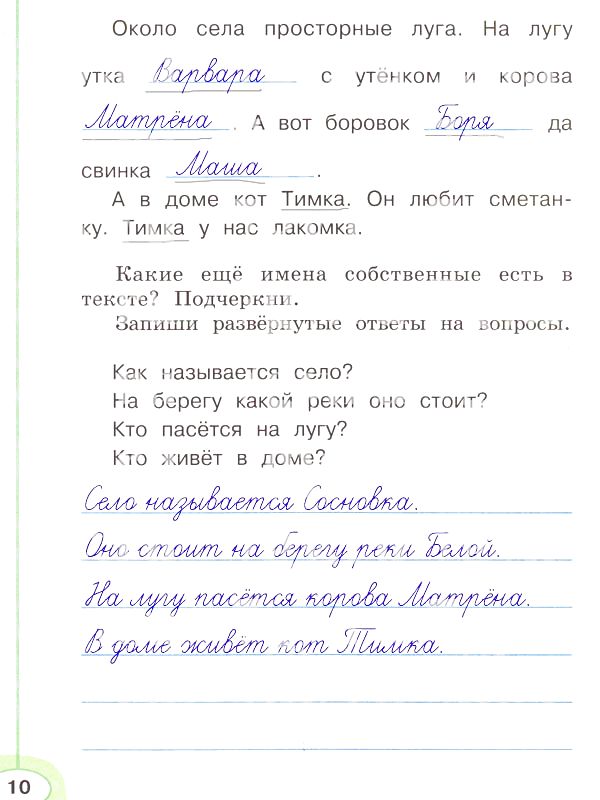 Около села просторные луга. На лугу
утка Варвара с утёнком и корова
Матрёна. А вот боровок Боря да
свинка Маша.
А в доме кот Тимка. Он любит сметан-
ку. Тимка у нас лакомка.
Какие ещё имена собственные есть в
тексте? Подчеркни.
Запиши развёрнутые ответы на вопросы.
Как называется село?
На берегу какой реки оно стоит?
Кто пасётся на лугу?
Кто живёт в доме?
Село называется Сосновка.
Оно стоит на берегу реки Белой.
На лугу пасётся корова Матрёна.
В доме живёт кот Тимка.
10